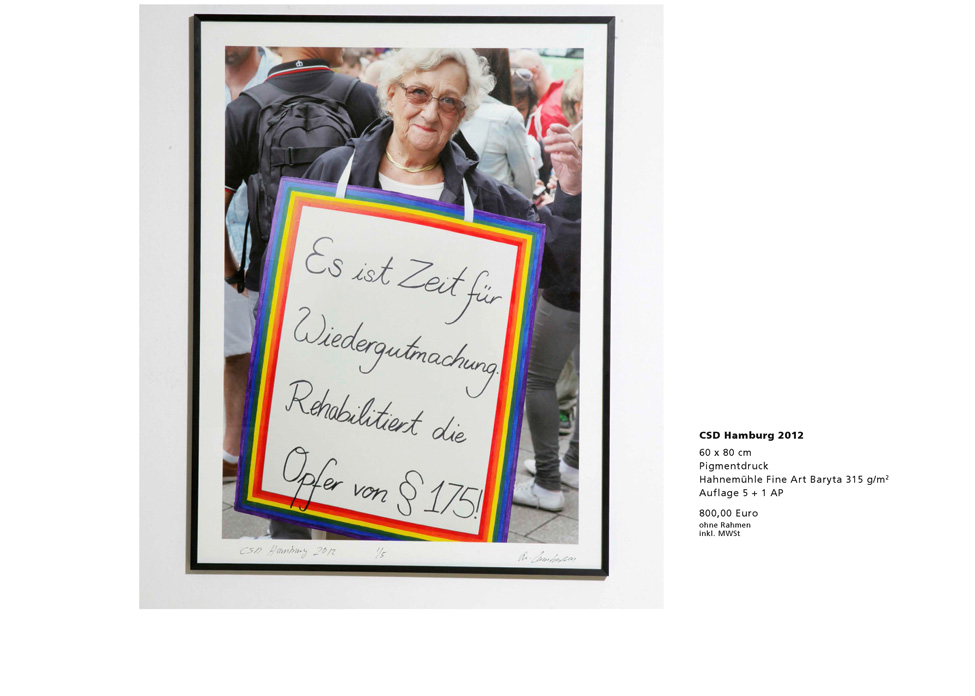 Es ist Zeit für
Wiedergutmachung.
Rehabilitiert die
Opfer von § 175!
CSD Hamburg 2012
1/5
CSD Hamburg 2012
60 x 80 cm
Pigmentdruck
Hahnemühle Fine Art Baryta 315 g/m²
Auflage 5 + 1 AP
800,00 Euro
ohne Rahmen
inkl. MWSt